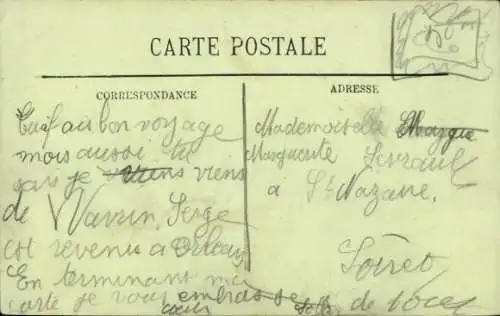 CARTE POSTALE
CORRESPONDANCE
ADRESSE
bon voyage
mois aussi tu
sais je viens viens
de Wavrin. Serge
est revenu a Orléans
En terminant ma
carte je vous embrasse
de tout
coeur
Mademoiselle
Marguerite
a St Nazaire.
Loiret